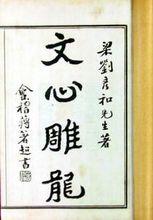 梁劉彥和先生著
文心雕龍
會稽蔣著超書